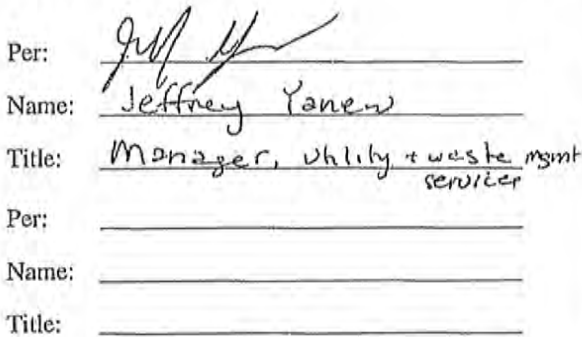 Per:
Name: Jeffrey Yanew
Title: Manager, Utility + waste mgmt
services
Per:
Name:
Title: